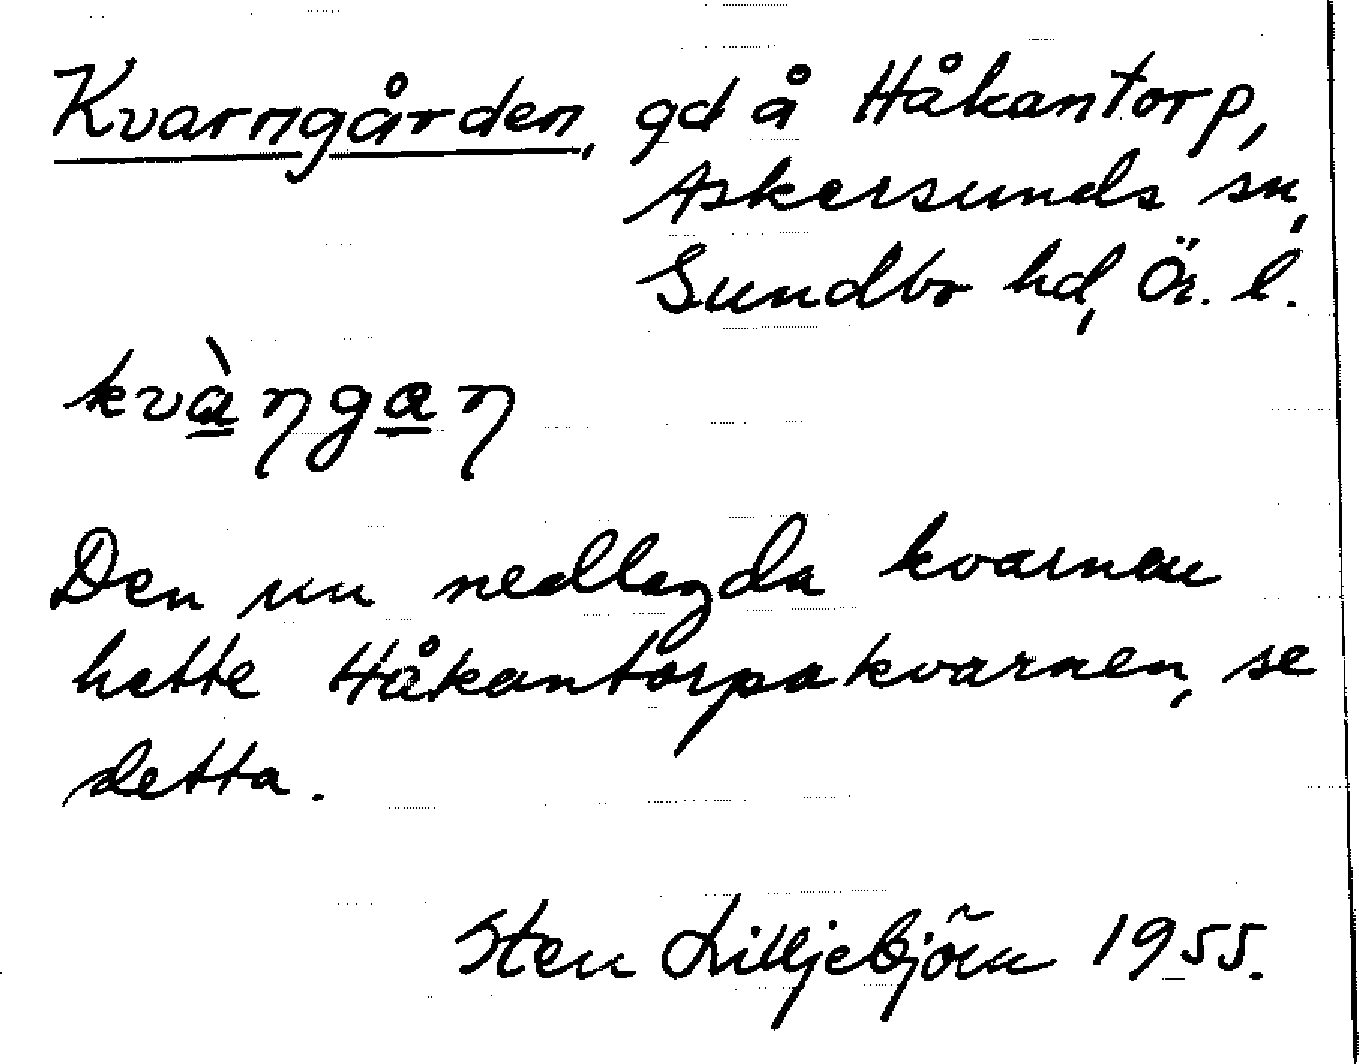 Kvarngården, gd å Håkantorp,
Askersunds sn,
Sundbo hd, Ör. l.
kvàŋgaŋ
Den nu nedlagda kvarnen
hette Håkantorpakvarnen, se
detta.
Sten Lilljebjörn 1955.